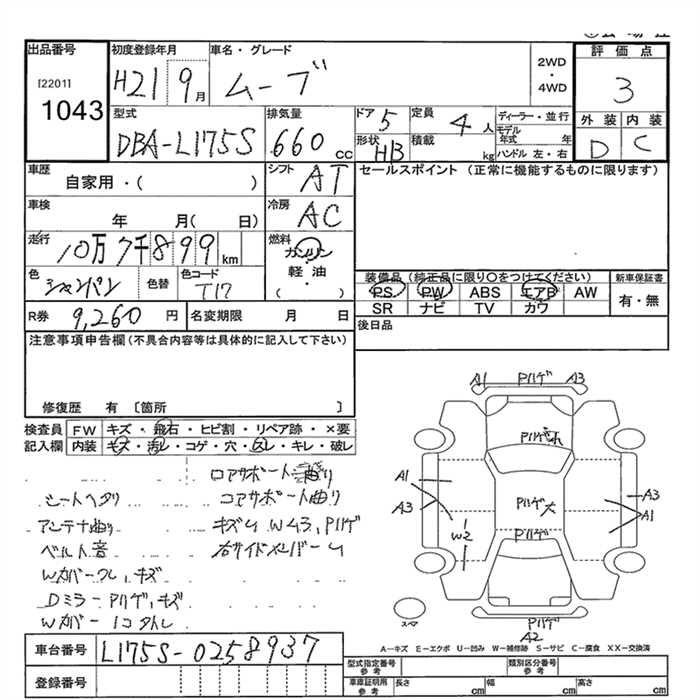 出品番号
[2201]
1043
初度登録年月
H21 9月
車名・グレード
ムーブ
2WD
・
4WD
評価点
3
外装 内装
D C
型式
DBA-L175S
排気量
660 cc
ドア 5
定員 4人
形状 HB
積載 kg
ディーラー・並行
モデル年式 年
ハンドル 左・右
車歴
自家用・( )
シフト AT
セールスポイント (正常に機能するものに限ります)
車検
年 月( 日)
冷房 AC
走行
10万7千899 km
燃料
ガソリン
軽油
・
( )
色 シャンパン
色替
色コード T17
装備品 (純正品に限り○をつけてください)
新車保証書
PS PW ABS エアB AW
有・無
SR ナビ TV カワ
R券 9,260 円
名変期限 月 日
後日品
注意事項申告欄(不具合内容等は具体的に記入して下さい)
修復歴 有 [箇所 ]
検査員 FW キズ・飛石・ヒビ割・リペア跡・×要
記入欄 内装 キズ・汚レ・コゲ・穴・スレ・キレ・破レ
コアサポート曲り
シートヘタリ
アンテナ曲り
キズム W43,Pハゲ
ベルト音
右サイドメンバーム
Wカバークレ,キズ
Dミラー Pハゲ,キズ
Wカバー1コタレ
A1 Pハゲ A3
Pハゲ
A1
A3
W2
Pハゲ大
Pハゲ
A3
A1
Pハゲ
A2
A-キズ E-エクボ U-凹み W-補修跡 S-サビ C-腐食 XX-交換済
車台番号 L175S-0258937
登録番号
型式指定番号 参考
類別区分番号 参考
車庫証明用 参考
長さ cm 幅 cm 高さ cm